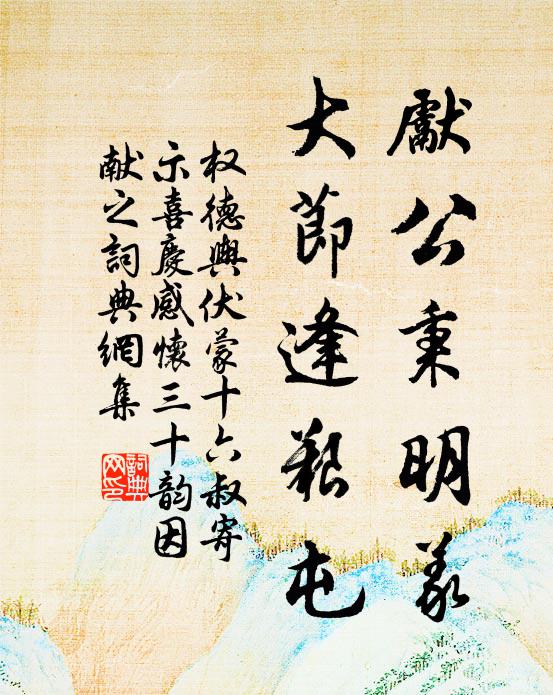 獻公秉明義
大節逢艱屯
权德輿伏蒙十六叔寄
示喜慶感懷三十韵因
献之詞典網集
詞典
网印